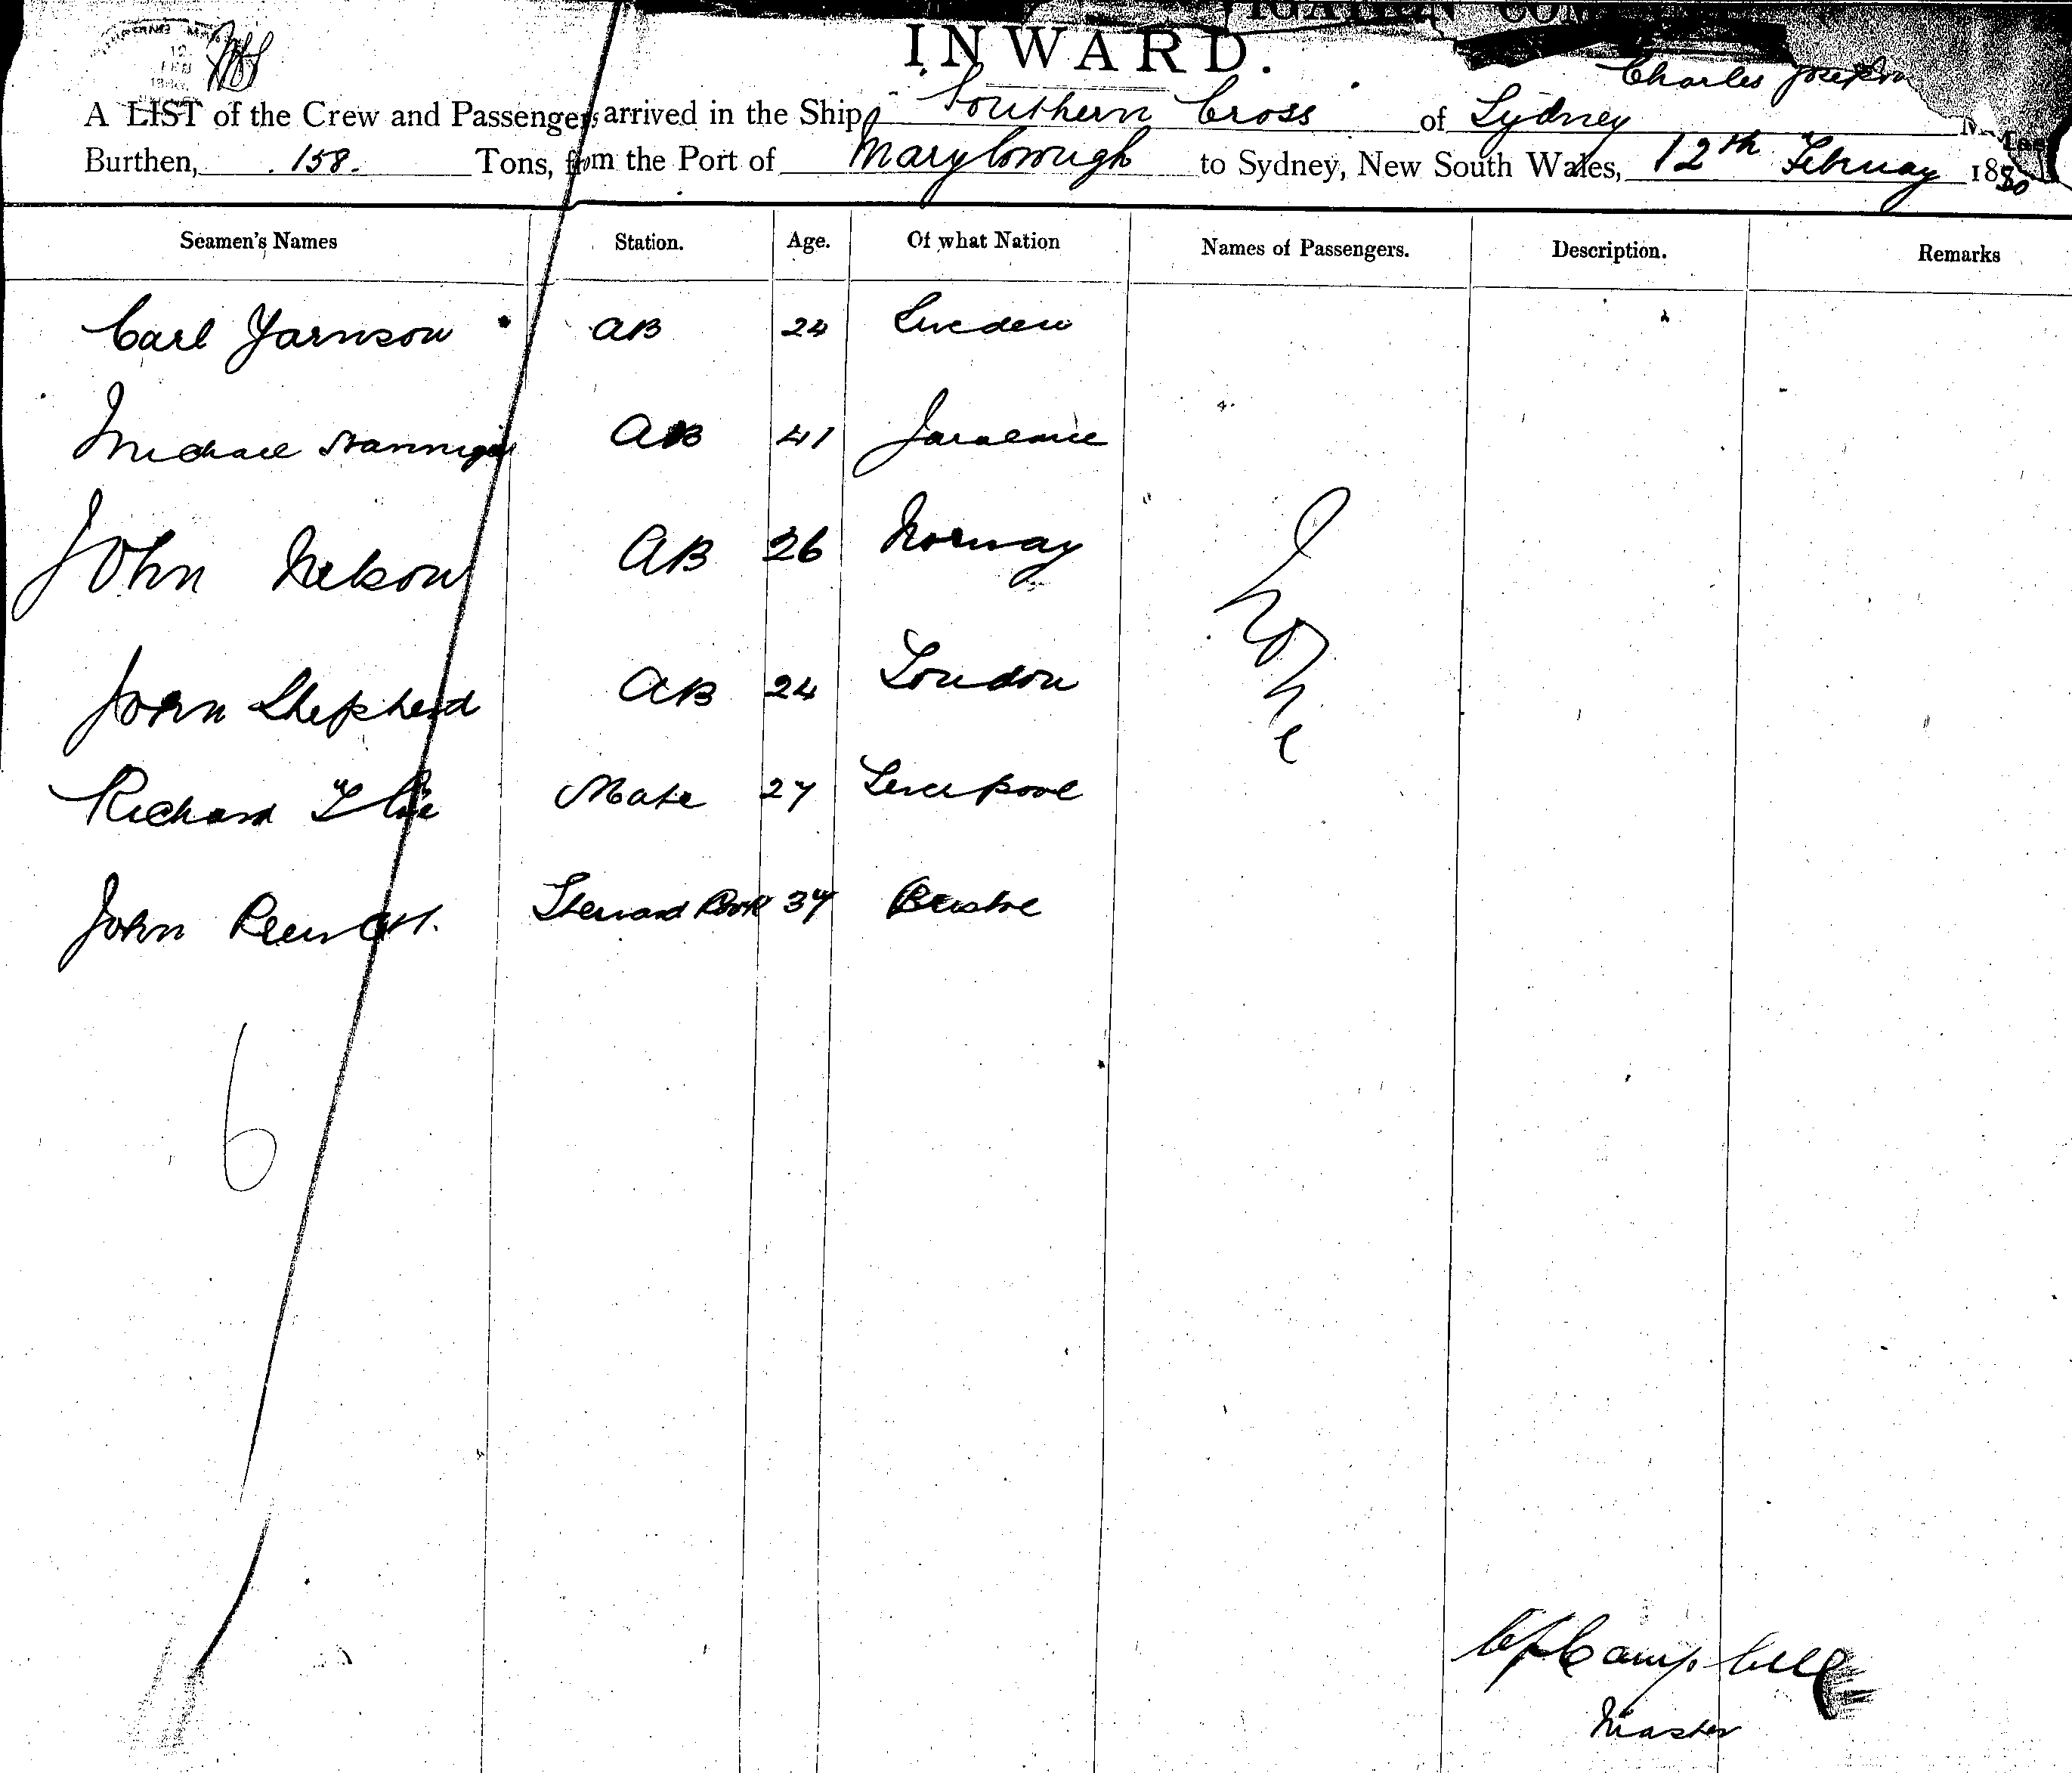 INWARD.
Charles Joseph
A LIST of the Crew and Passengers arrived in the Ship Southern Cross of Sydney
Burthen, 158. Tons, from the Port of Maryborough to Sydney, New South Wales, 12th February 1880
Seamen's Names Station. Age. Of what Nation Names of Passengers. Description. Remarks
Carl Yarnson AB 24 Sweden
Michael AB 41
John Nelson AB 26 Norway
None
John Shepherd AB 24 London
Richard Mate 27 Liverpool
John Steward Cook 37 Bristol
6
Campbell
Master